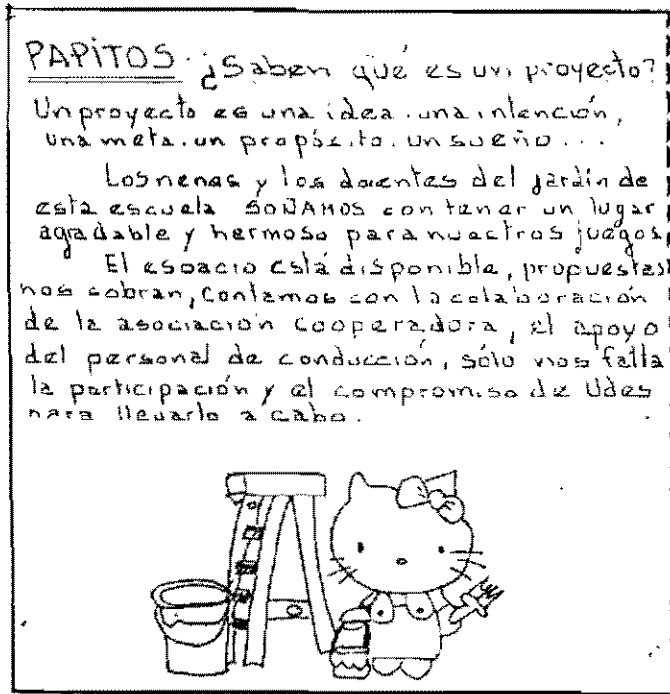 PAPiTOS. ¿Saben qué es un proyecto?
Un proyecto es una idea. una intención,
una meta. un propósito. un sueño...
Los nenes y los docentes del jardín de
esta escuela SOÑAMOS con tener un lugar
agradable y hermoso para nuestros juegos.
El espacio está disponible, propuestas
nos sobran, contamos con la colaboración
de la asociación cooperadora, el apoyo
del personal de conducción, sólo nos falta
la participación y el compromiso de Udes
para llevarlo a cabo.